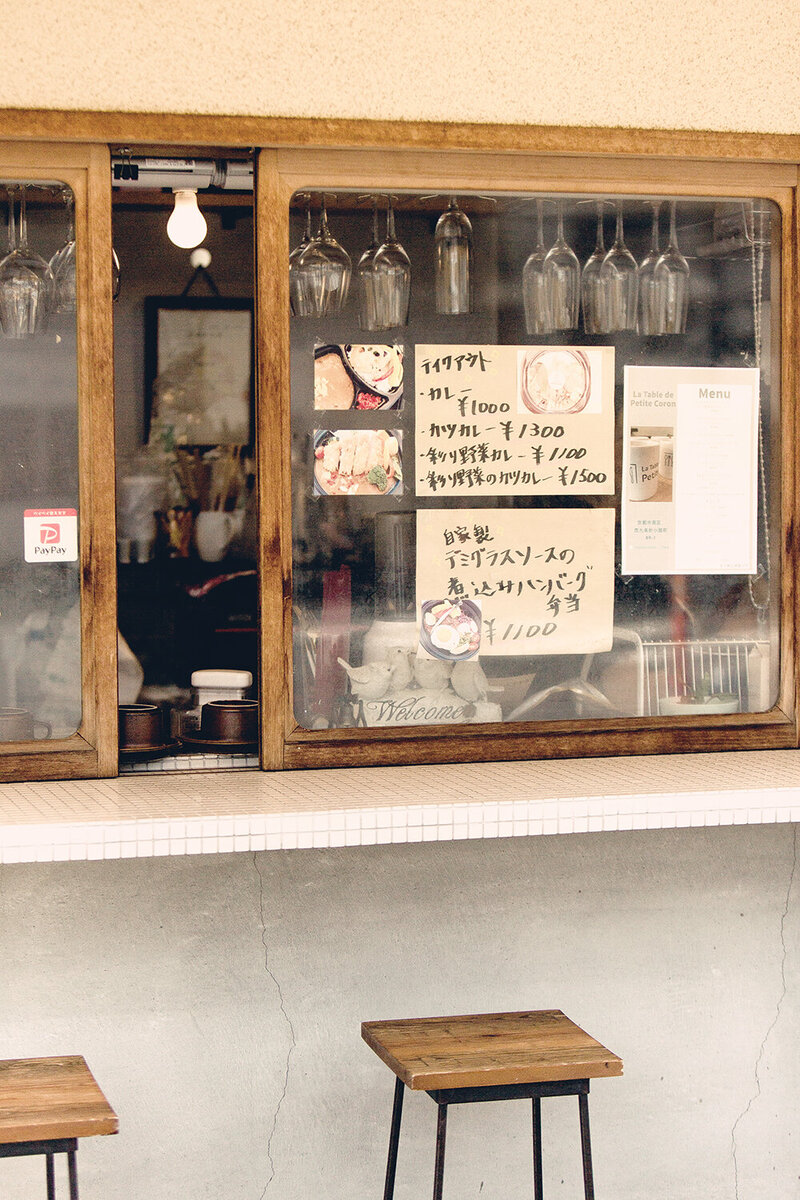 テイクアウト
・カレー
¥1000
・カツカレー ¥1300
・彩り野菜カレー ¥1100
・彩り野菜のカツカレー ¥1500
自家製
デミグラスソースの
煮込みハンバーグ
弁当
¥1100
La Table de
Petite Coron
Menu
La Table
Petite
PayPay
Welcome